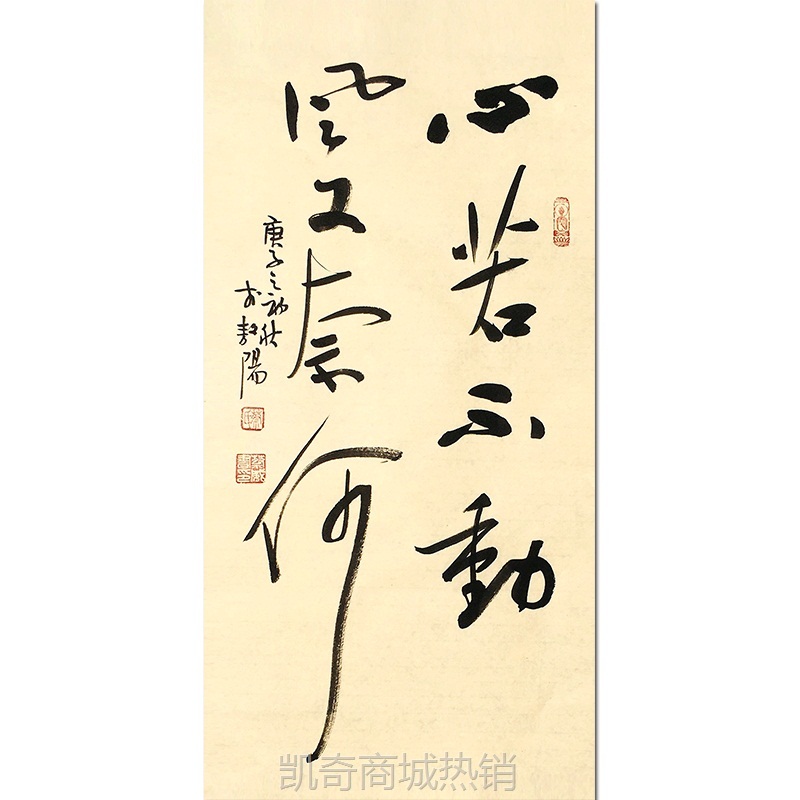 心若不動
風又奈何
庚子之初秋
於
陽
凯奇商城热销